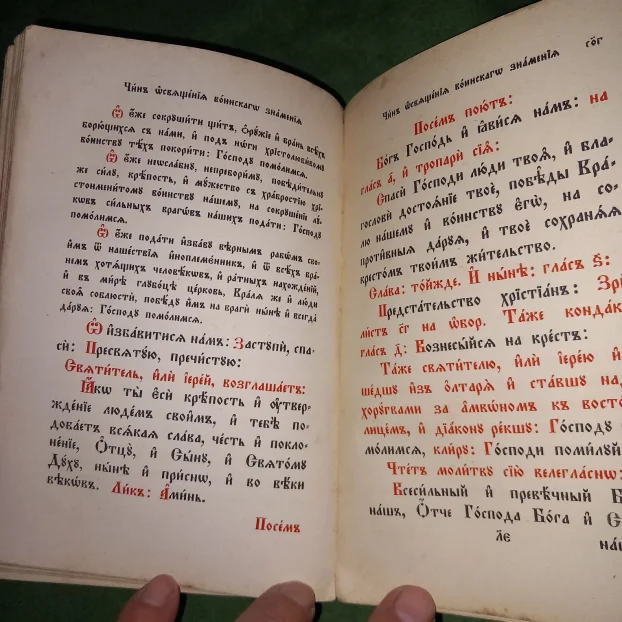 Чи́нъ ѡ҆свѧще́нїѧ во́инскагѡ зна́менїѧ
Ѡ҆ є҆́же сокрꙋши́ти щи́тъ, ѻ҆рꙋ́жїе и҆ бра́нь всѣ́хъ
борю́щихсѧ съ на́ми, и҆ под̾ но́ги хрїстолюби́вомꙋ
во́инствꙋ тѣ́хъ покори́ти: Го́сподꙋ помо́лимсѧ.
Ѡ҆ є҆́же неѡсла́бнꙋ, непребори́мꙋ, побѣди́тельнꙋ
же си́лꙋ, крѣ́пость, и҆ мꙋ́жество съ хра́бростїю хрї-
стоимени́томꙋ во́инствꙋ на́шемꙋ, на сокрꙋше́нїе лє́-
кѡвъ си́льныхъ врагѡ́въ на́шихъ пода́ти: Го́сподꙋ
помо́лимсѧ.
Ѡ҆ є҆́же пода́ти и҆зба́вꙋ вѣ̑рнымъ рабѡ́мъ свои̑-
мъ ѿ наше́ствїѧ и҆ноплеме́нникъ, и҆ ѿ всѣ́хъ вра-
не́мъ хотѧ́щихъ человѣ́кѡвъ, и҆ ра́тныхъ нахожде́нїй,
и҆ въ ми́рѣ глꙋбо́цѣ це́рковь, Кралѧ̀ же и҆ лю́ди
своѧ̑ соблюстѝ, побѣ́дꙋ и҆̀мъ на врагѝ ны́нѣ и҆ всегда̀
да́рꙋѧ: Го́сподꙋ помо́лимсѧ.
Ѡ҆ и҆зба́витисѧ на́мъ: Застꙋпѝ, спа-
сѝ: Пресвѧтꙋ́ю, пречи́стꙋю:
Свѧти́тель, и҆лѝ і҆ере́й, возглаша́етъ:
Ꙗ҆́кѡ ты̀ є҆сѝ крѣ́пость и҆ ᲂу҆твер-
жде́нїе лю́демъ свои̑мъ, и҆ тебѣ̀ по-
доба́етъ всѧ́каѧ сла́ва, че́сть и҆ покло-
не́нїе, Ѻ҆тцꙋ̀, и҆ Сы́нꙋ, и҆ Свѧто́мꙋ
Дꙋ́хꙋ, ны́нѣ и҆ при́снѡ, и҆ во вѣ́ки
вѣкѡ́въ. Ли́къ: А҆ми́нь.
Посе́мъ
Чи́нъ ѡ҆свѧще́нїѧ во́инскагѡ зна́менїѧ
со҃г
Посе́мъ пою́тъ:
Бо́гъ Госпо́дь и҆ ꙗ҆ви́сѧ на́мъ: на
гла́съ а҃, и҆ тропарѝ сїѧ̑:
Спасѝ Го́споди лю́ди твоѧ̑, и҆ бла-
гословѝ достоѧ́нїе твоѐ, побѣ́ды Кра-
лю̀ на́шемꙋ и҆ во́инствꙋ є҆гѡ̀, на со-
проти̑вныѧ да́рꙋѧ, и҆ твоѐ сохранѧ́ѧ
кресто́мъ твои́мъ жи́тельство.
Сла́ва: то́йжде. И҆ ны́нѣ: гла́съ ѕ҃:
Предста́тельство хрїстїа́нъ: Зрѝ
ли́стъ сг҃ на ѡ҆бор. Та́же конда́к
гла́съ д҃: Вознесы́йсѧ на кре́стъ:
Та́же свѧти́телю, и҆лѝ і҆ере́ю и҆
ше́дшꙋ и҆зъ ѻ҆лтарѧ̀ и҆ ста́вшꙋ над
хорꙋ́гвами за а҆мвѡ́номъ къ восто́
лице́мъ, и҆ дїа́конꙋ ре́кшꙋ: Го́сподꙋ
мо́лимсѧ, кли́рꙋ: Го́споди поми́лꙋй
Чте́тъ моли́твꙋ сїю̀ велегла́снѡ:
Всеси́льный и҆ преве́чный Б
на́шъ, Ѻ҆́тче Го́спода Бо́га и҆ С
л҃е
на́ш